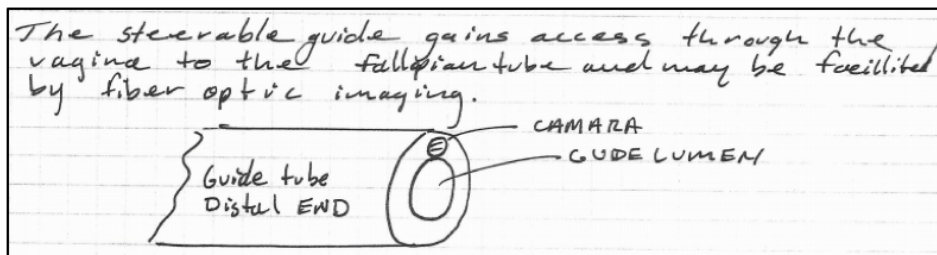 The steerable guide gains access through the
vagina to the fallopian tube and may be facillited
by fiber optic imaging.
CAMARA
GUDE LUMEN
Guide tube
Distal END